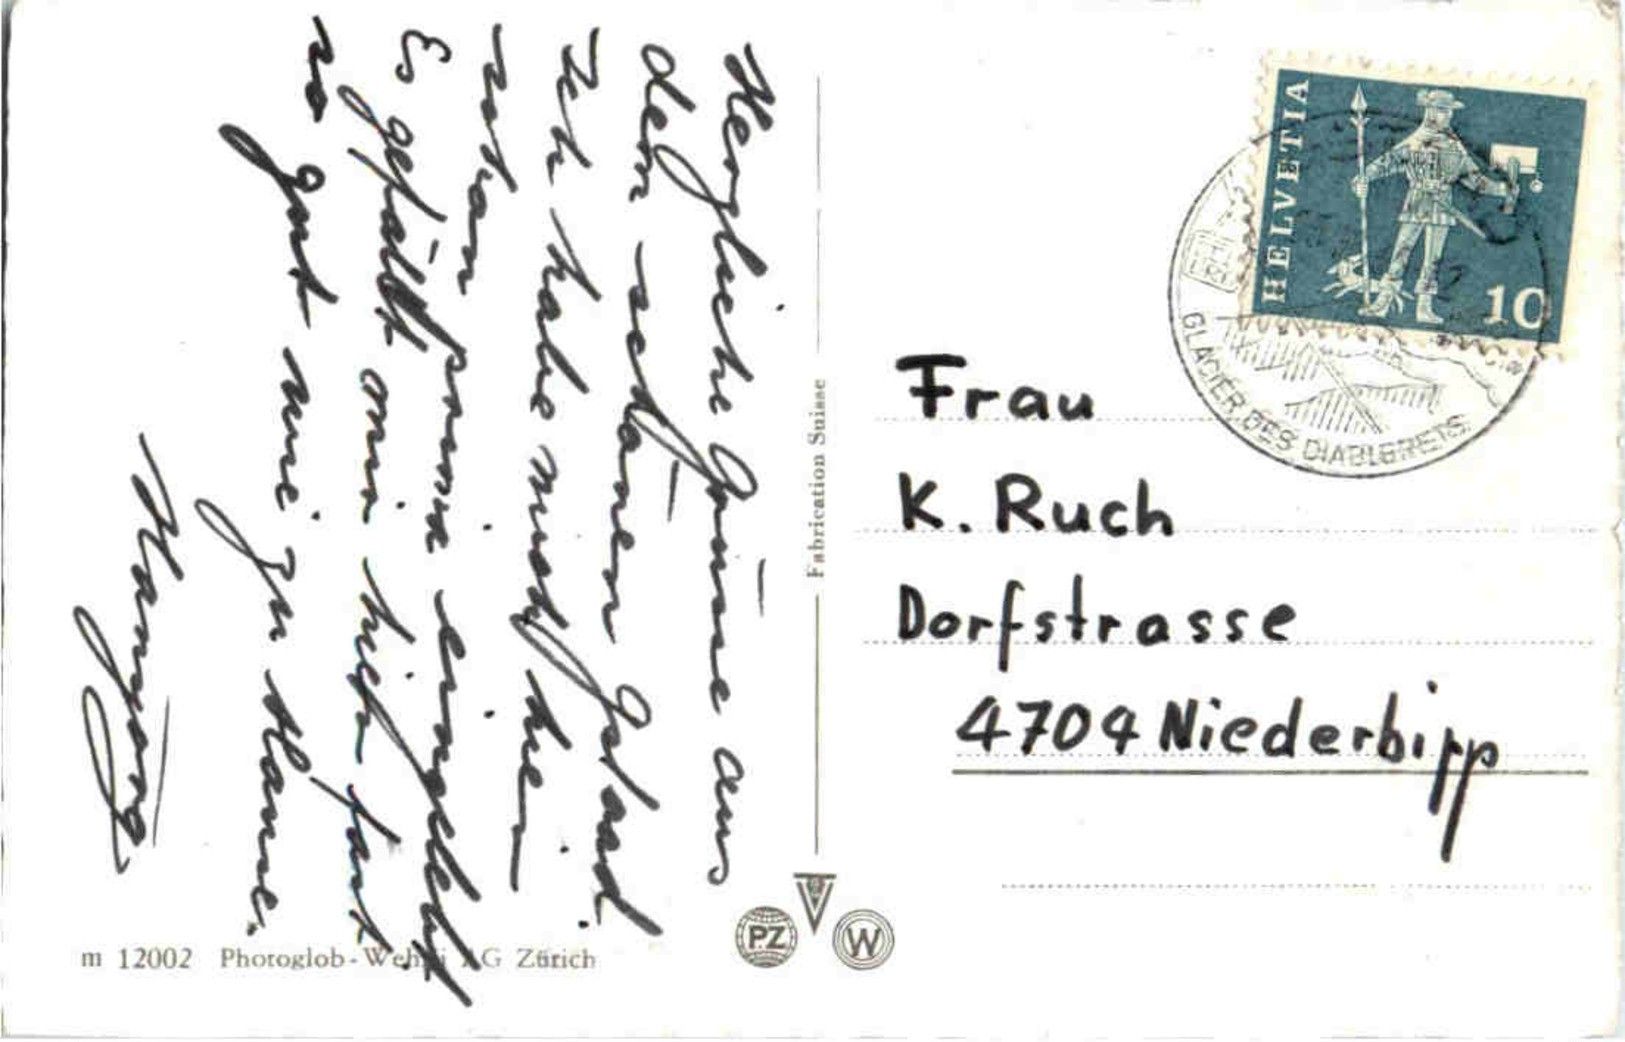 Herzliche Grüsse aus
dem schönen Gstaad
Ich habe mich hier
schon prima eingelebt
Es gefällt mir hier fast
so gut wie zu Hause.
Hansjörg
Fabrication Suisse
HELVETIA
10
GLACIER DES DIABLERETS
Frau
K. Ruch
Dorfstrasse
4704 Niederbipp
PZ
W
m 12002 Photoglob-Wehrli AG Zürich